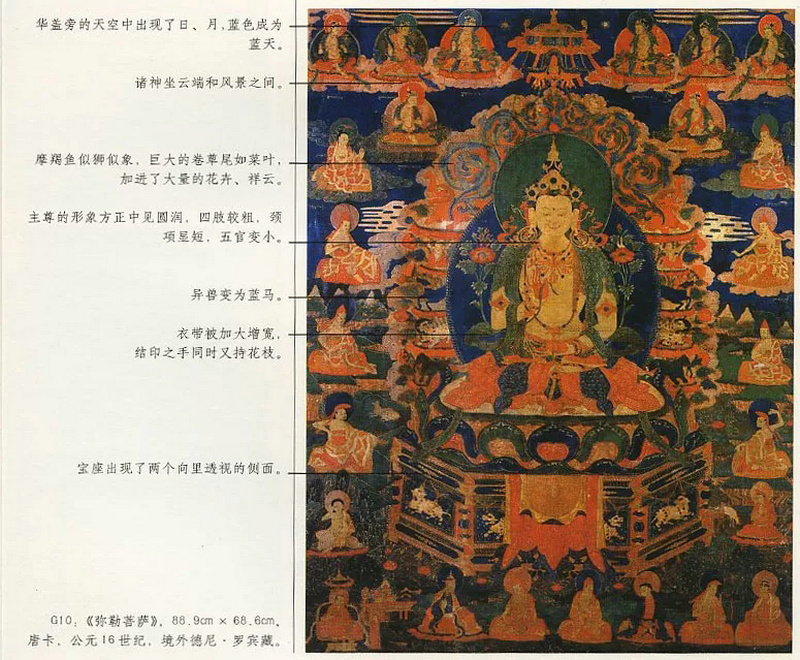 华盖旁的天空中出现了日、月,蓝色成为
蓝天。
诸神坐云端和风景之间。
摩羯鱼似狮似象，巨大的卷草尾如菜叶，
加进了大量的花卉、祥云。
主尊的形象方正中见圆润，四肢较粗，颈
项显短，五官变小。
异兽变为蓝马。
衣带被加大增宽，
结印之手同时又持花枝。
宝座出现了两个向里透视的侧面。
G10：《弥勒菩萨》，88.9cm × 68.6cm，
唐卡，公元16世纪，境外德尼·罗宾藏。